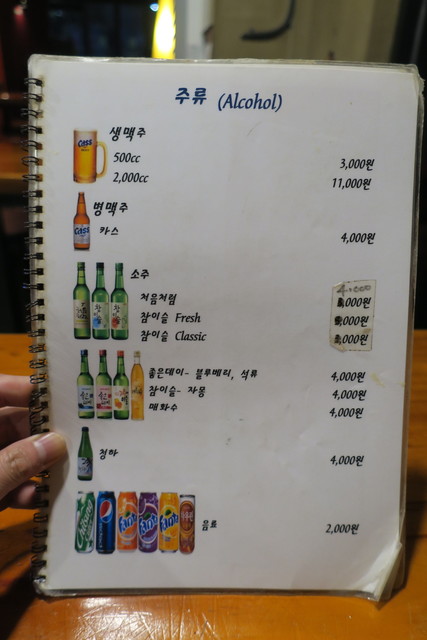 주류 (Alcohol)
생맥주
500cc 3,000원
2,000cc 11,000원
병맥주
카스 4,000원
소주
처음처럼 ,000원
참이슬 Fresh ,000원
참이슬 Classic ,000원
좋은데이- 블루베리, 석류 4,000원
참이슬- 자몽 4,000원
매화수 4,000원
청하 4,000원
음료 2,000원
Cass
Cass
pepsi
Fanta
Fanta
Fanta